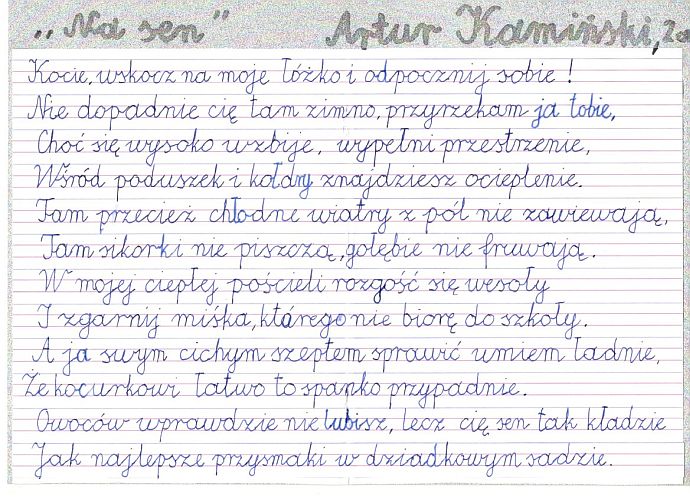 „Na sen" Artur Kamiński, 2a
Kocie, wskocz na moje łóżko i odpocznij sobie!
Nie dopadnie cię tam zimno, przyrzekam ja tobie,
Choć się wysoko wzbije, wypełni przestrzenie,
Wśród poduszek i kołdry znajdziesz ocieplenie.
Tam przecież chłodne wiatry z pól nie zawiewają,
Tam sikorki nie piszczą, gołębie nie fruwają.
W mojej ciepłej pościeli rozgość się wesoły
I zgarnij miśka, którego nie biorę do szkoły.
A ja swym cichym szeptem sprawić umiem ładnie,
Że kocurkowi łatwo to spanko przypadnie.
Owoców wprawdzie nie lubisz, lecz cię sen tak kładzie
Jak najlepsze przysmaki w dziadkowym sadzie.